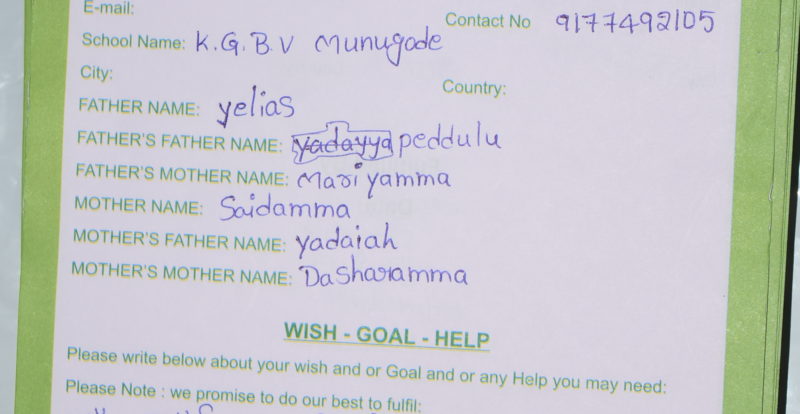 E-mail:
Contact No 9177492105
School Name: K.G.B.V Munugode
City:
Country:
FATHER NAME: yelias
FATHER'S FATHER NAME: yadayya peddulu
FATHER'S MOTHER NAME: Mariyamma
MOTHER NAME: Saidamma
MOTHER'S FATHER NAME: yadaiah
MOTHER'S MOTHER NAME: Dasharamma
WISH - GOAL - HELP
Please write below about your wish and or Goal and or any Help you may need:
Please Note : we promise to do our best to fulfil: